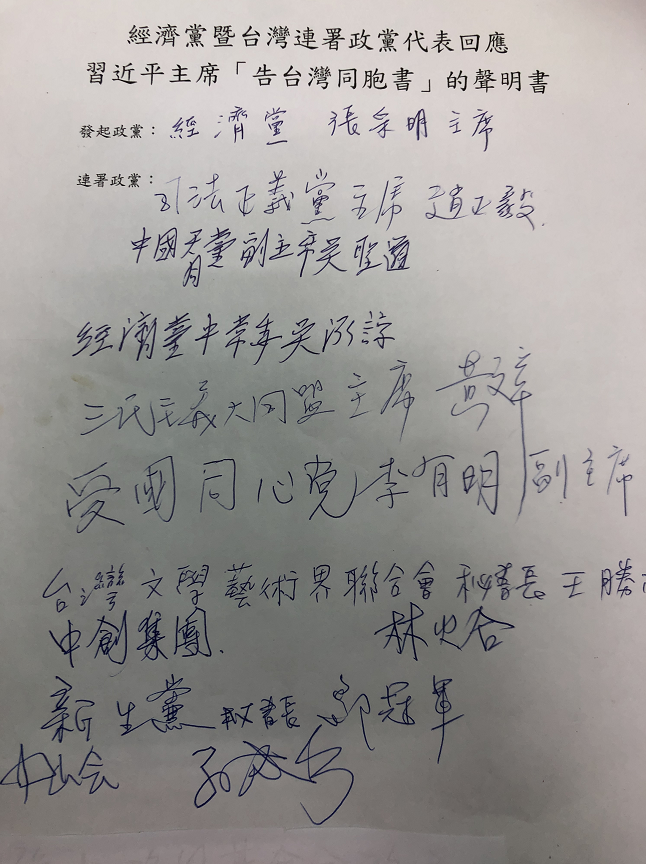 經濟黨暨台灣連署政黨代表回應
習近平主席「告台灣同胞書」的聲明書
發起政黨：經濟黨 張采明主席
連署政黨：司法正義黨主席 趙正毅
中國天肯黨副主席吳聖道
經濟黨中常委吳泓諄
三民主義大同盟主席 黃文章
愛國同心党李有明副主席
台灣文學藝術界聯合會 秘書長 王勝
中創集團 林火合
新生黨 秘書長 郭冠軍
中山会